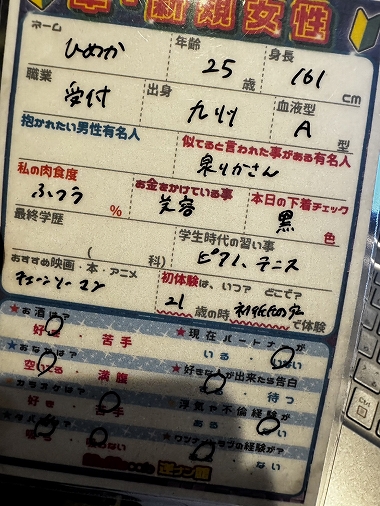 単・新規女性
ネーム 年齢 身長
ひめか 25歳 161cm
職業 出身 血液型
受付 九州 A型
抱かれたい男性有名人 似てると言われた事がある有名人
泉りかさん
私の肉食度 お金をかけている事 本日の下着チェック
ふつう% 美容 黒色
最終学歴 学生時代の習い事
( 科) ピアノ、テニス
おすすめ映画・本・アニメ 初体験は、いつ? どこで?
チェーンソーマン 21歳の時 で体験
★お酒は? ★現在パートナーが
好き・苦手 いる
おなかは? ★好きな人が出来たら告白
空いてる 満腹 待つ
カラオケは? 浮気や不倫経験が
好き・苦手 ある・ない
タバコは?
吸う・吸わない ない